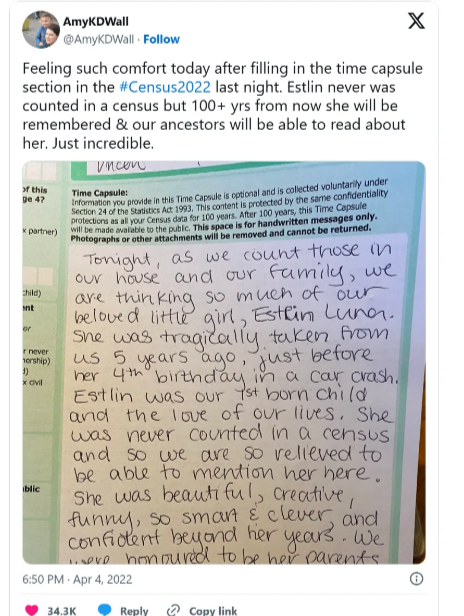 AmyKDWall
@AmyKDWall · Follow
Feeling such comfort today after filling in the time capsule
section in the #Census2022 last night. Estlin never was
counted in a census but 100+ yrs from now she will be
remembered & our ancestors will be able to read about
her. Just incredible.
of this
ge 4?
x partner)
child)
nt
or
r never
nership)
d)
x civil
ublic
Time Capsule:
Information you provide in this Time Capsule is optional and is collected voluntarily under
Section 24 of the Statistics Act 1993. This content is protected by the same confidentiality
protections as all your Census data for 100 years. After 100 years, this Time Capsule
will be made available to the public. This space is for handwritten messages only.
Photographs or other attachments will be removed and cannot be returned.
Tonight as we count those in
our house and our family, we
are thinking so much of our
beloved little girl, Estlin Luna.
She was tragically taken from
us 5 years ago, just before
her 4th birthday in a car crash.
Estlin was our 1st born child
and the love of our lives. She
was never counted in a census
and so we are so relieved to
be able to mention her here.
She was beautiful, creative,
funny, so smart & clever, and
confident beyond her years. We
were honoured to be her parents
6:50 PM · Apr 4, 2022
34.3K Reply Copy link